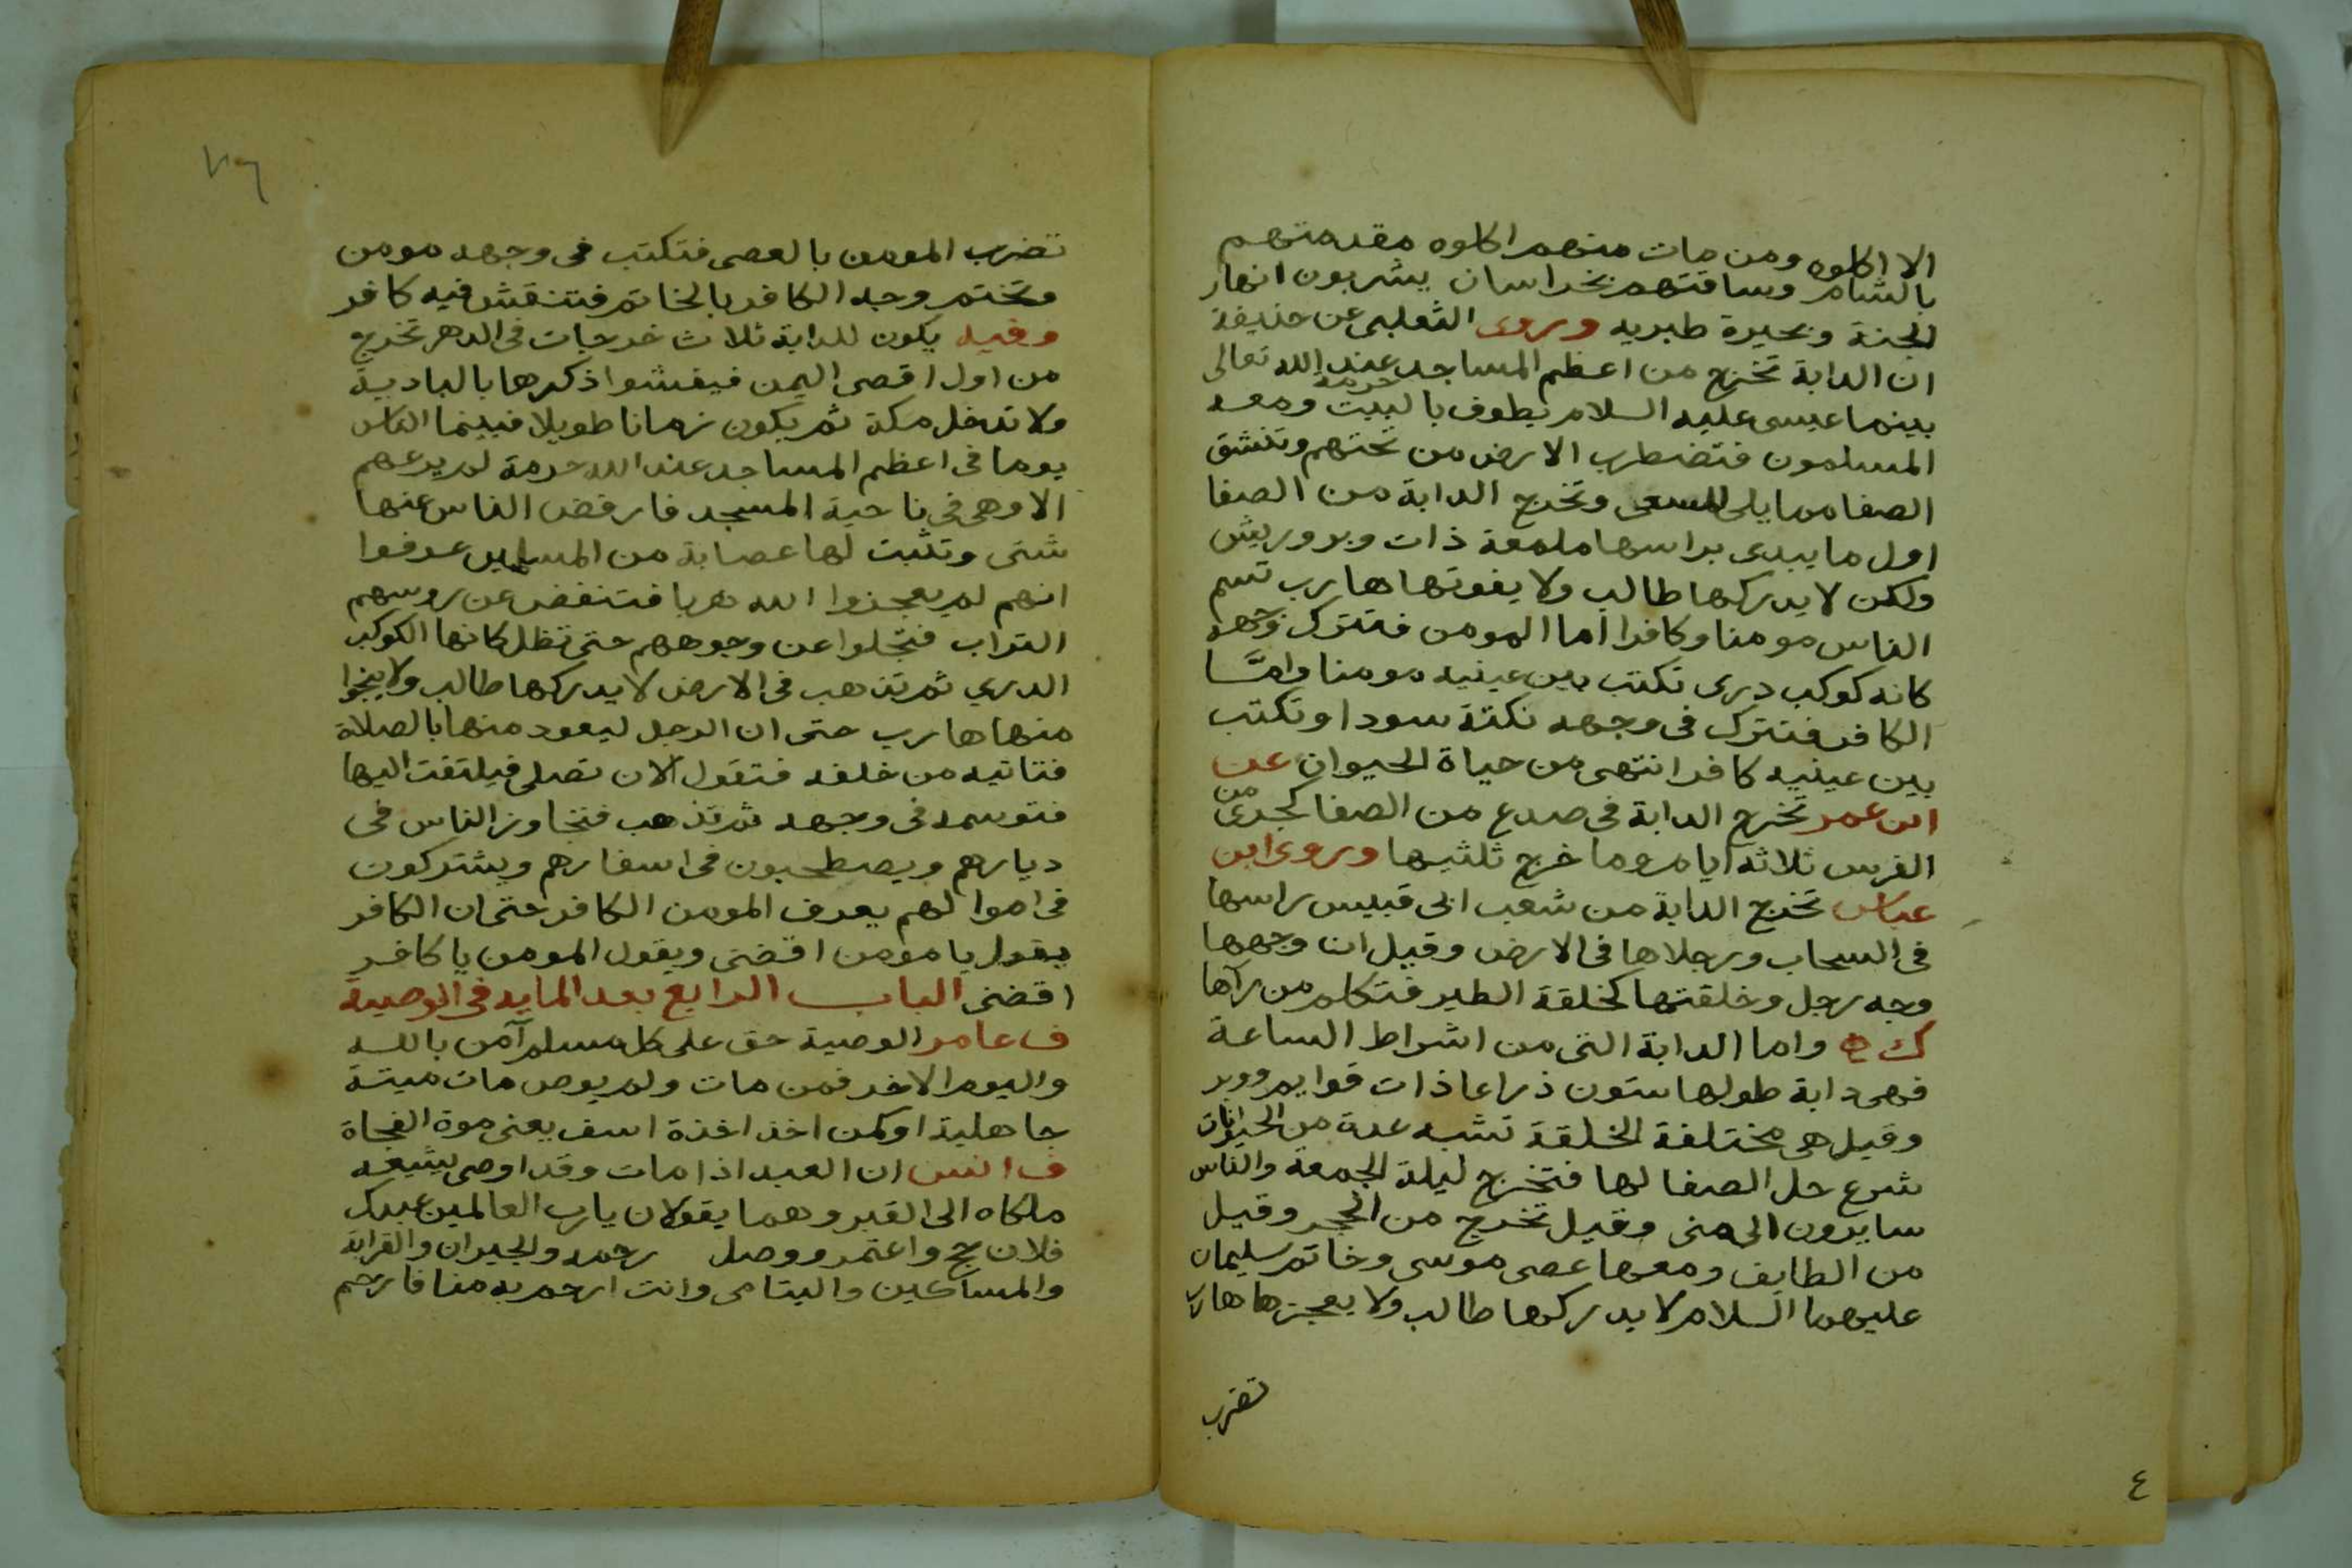 الا اكلوه ومن مات منهم اكلوه مقدمتهم
بالشام وساقتهم بخراسان يشربون انهار
الجنة وبحيرة طبريه وروى الثعلبى عن حذيفة
ان الدابة تخرج من اعظم المساجد حرمة عند الله تعالى
بينما عيسى عليه السلام يطوف بالبيت ومعه
المسلمون فتضطرب الارض من تحتهم وتنشق
الصفا مما يلى المسعى وتخرج الدابة من الصفا
اول ما يبدى براسها ملمعة ذات وبر وريش
ولكن لا يدركها طالب ولا يفوتها هارب تسم
الناس مومنا وكافرا اما المومن فتترك وجهه
كانه كوكب درى تكتب بين عينيه مومنا وامَّا
الكافر فتترك فى وجهه نكتة سودا وتكتب
بين عينيه كافرا انتهى من حياة الحيوان عن
ابن عمر تخرج الدابة فى صدع من الصفا كجرى من
الفرس ثلاثة ايام وما خرج ثلثيها وروى ابن
عباس تخرج الدابة من شعب ابى قبيس راسها
فى السحاب ورجلاها فى الارض وقيل ان وجهها
وجه رجل وخلقتها كخلقة الطير فتكلم من رآها
ك واما الدابة التى من اشراط الساعة
فهى دابة طولها ستون ذراعا ذات قوايم ووبر
وقيل هى مختلفة الخلقة تشبه عدة من الحيوانات
شرع حل الصفا لها فتخرج ليلة الجمعة والناس
سايرون الى منى وقيل تخرج من الحجر وقيل
من الطايف ومعها عصى موسى وخاتم سليمان
عليهما السلام لا يدركها طالب ولا يعجزها هارب
تضرب
٤
تضرب المومن بالعصى فتكتب فى وجهه مومن
وتختم وجه الكافر بالخاتم فتنقش فيه كافر
وفيه يكون للدابة ثلاث خرجات فى الدهر تخرج
من اول اقصى اليمن فيفشوا ذكرها بالبادية
ولا تدخل مكة ثم يكون زمانا طويلا فبينما الناس
يوما فى اعظم المساجد عند الله حرمة لم يرعهم
الا وهى فى ناحية المسجد فارفض الناس عنها
شتى وتثبت لها عصابة من المسلمين عرفوا
انهم لم يعجزوا الله هربا فتنفض عن روسهم
التراب فتجلوا عن وجوههم حتى تظل كانها الكوكب
الدري ثم تذهب فى الارض لا يدركها طالب ولا ينجوا
منها هارب حتى ان الرجل ليعود منها بالصلاة
فتاتيه من خلفه فتقول الان تصلى فيلتفت اليها
فتوسمه فى وجهه ثم تذهب فتجاوز الناس فى
ديارهم ويصطحبون فى اسفارهم ويشتركون
فى اموالهم يعرف المومن الكافر حتى ان الكافر
يقول يا مومن اقضنى ويقول المومن يا كافر
اقضنى الباب الرابع بعد المايه فى الوصية
ف عامر الوصية حق على كل مسلم آمن بالله
واليوم الاخر فمن مات ولم يوص مات ميتة
جاهلية او كمن اخذ اخذة اسف يعنى موة الفجاة
ف انس ان العبد اذا مات وقد اوصى يشيعه
ملكاه الى القبر وهما يقولان يا رب العالمين عبدك
فلان حج واعتمر ووصل رحمه والجيران والقرابة
والمساكين واليتامى وانت ارحم به منا فارحم